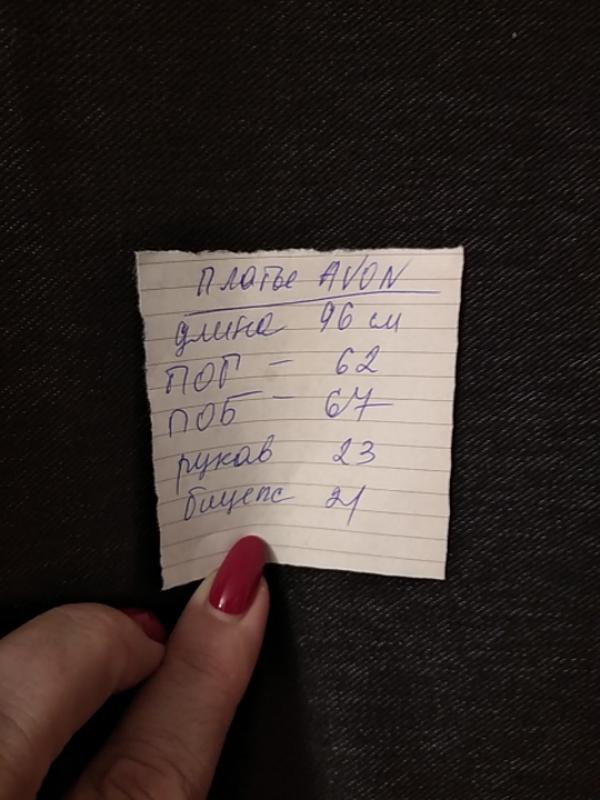 Платье AVON
длина 96 см
ПОГ - 62
ПОБ - 67
рукав 23
бицепс 21